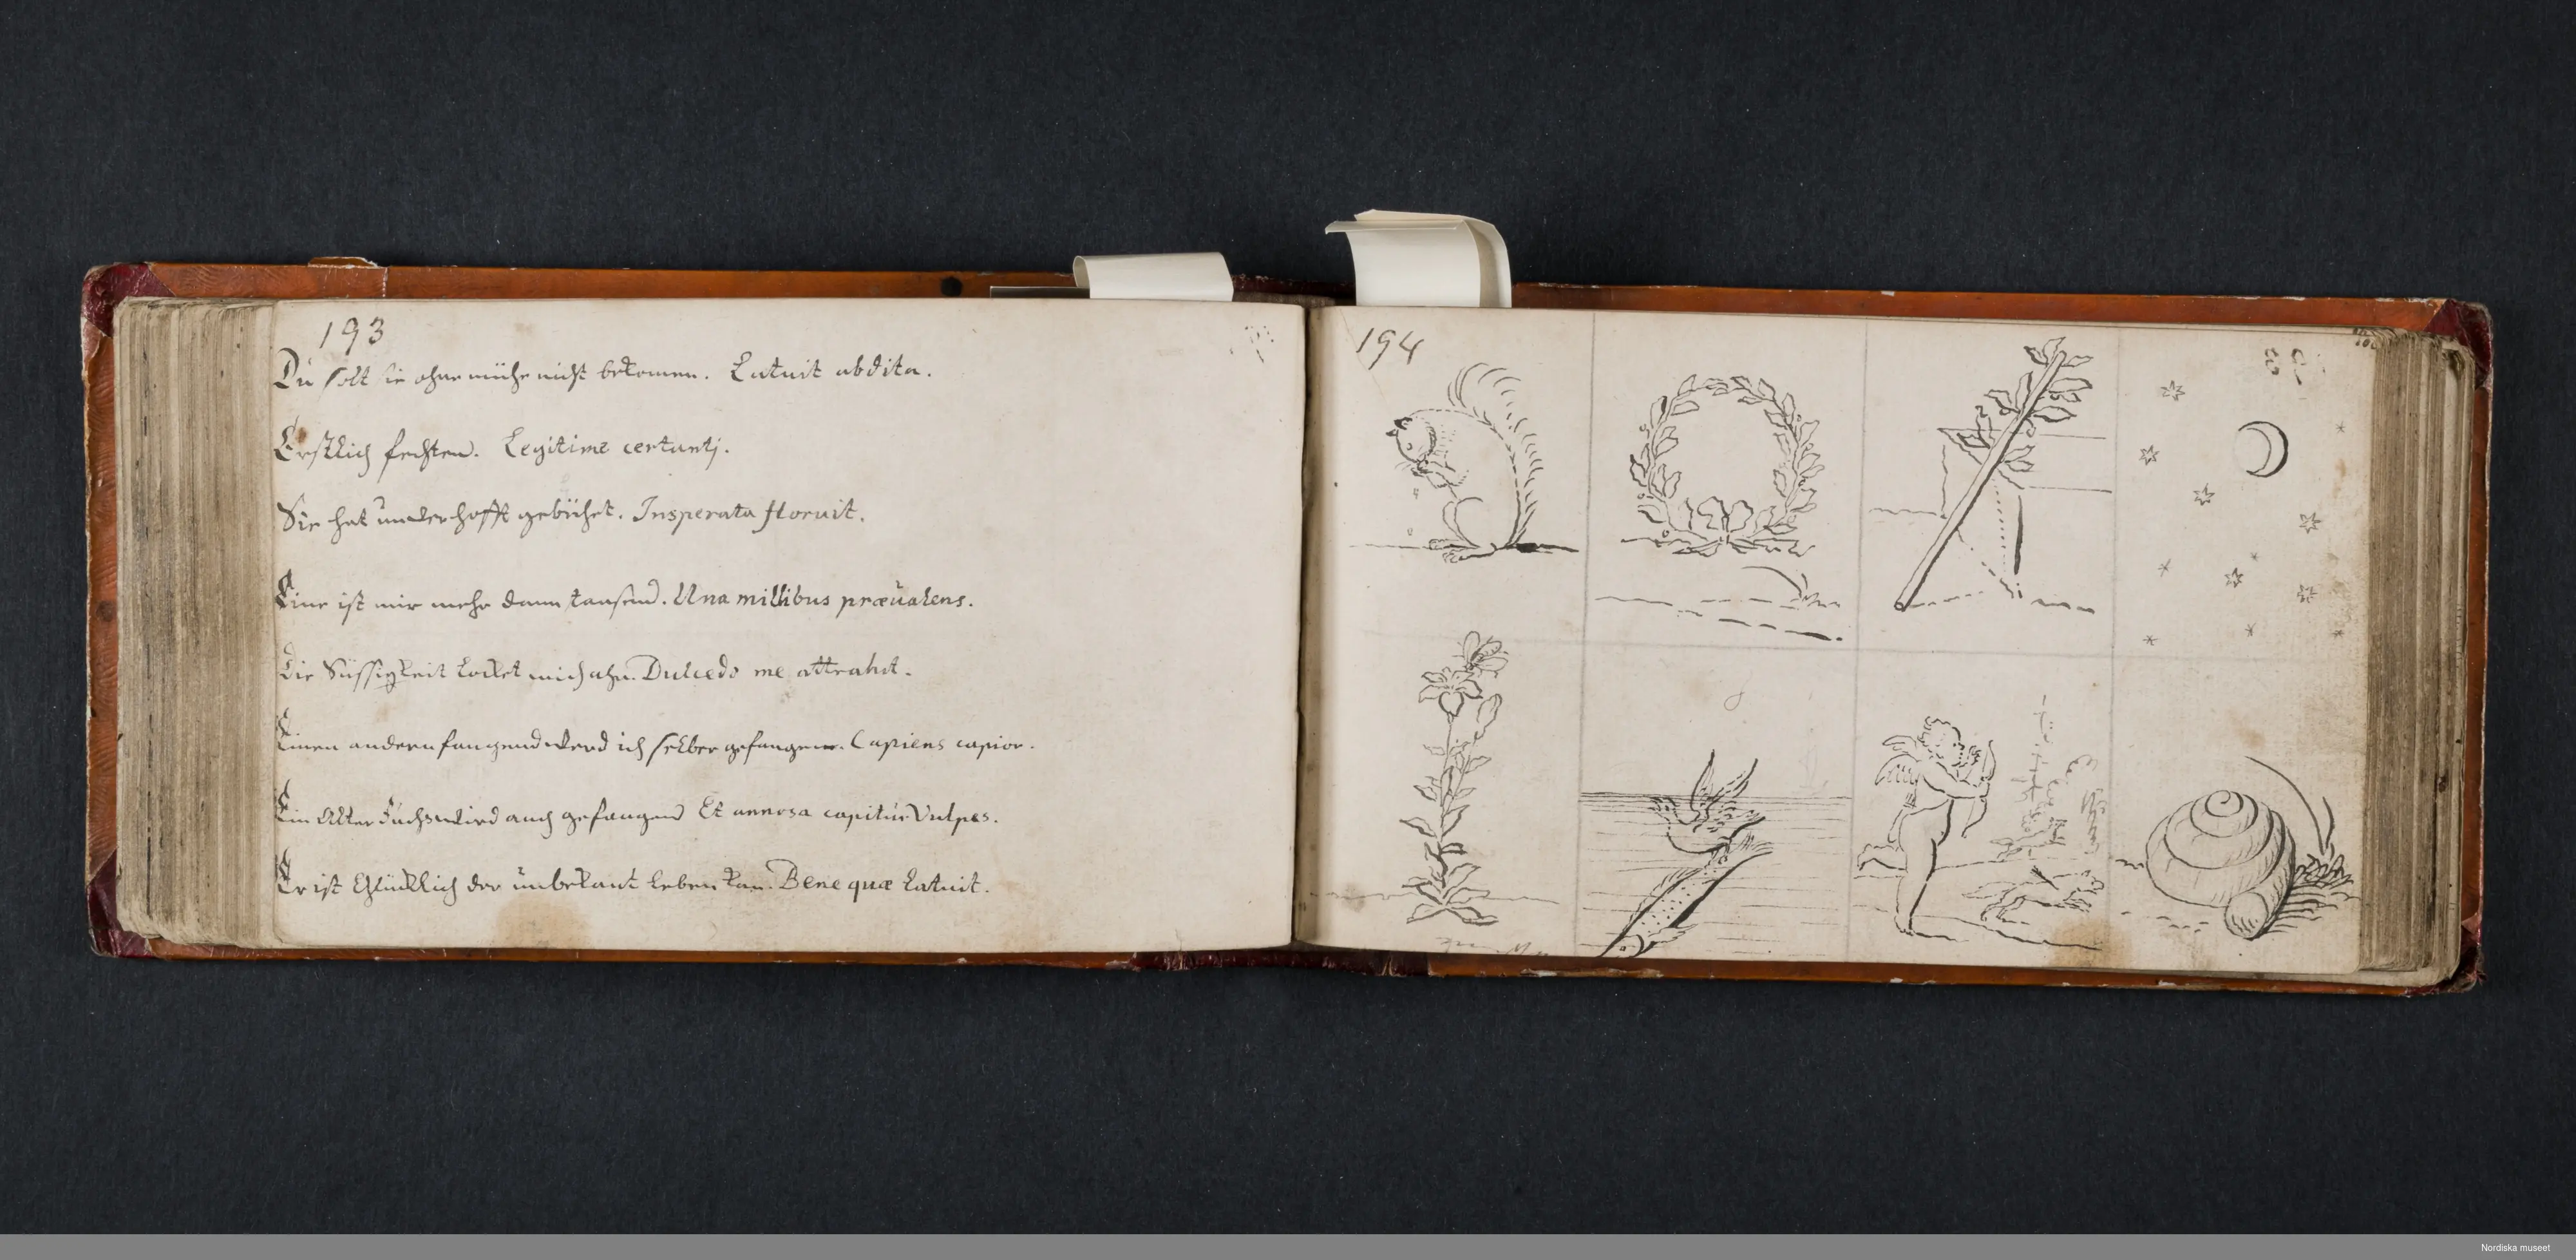 193
Du solt sie ohne mühe nicht bekomen. Latuit abdita.
Erstlich fechten. Legitime certanti.
Sie hat unverhofft geblühet. Insperata floruit.
Eine ist mir mehr dann tausend. Una millibus prævalens.
Die Süssigkeit locket mich ahn. Dulcedo me attrahit.
Einen andern fangend werd ich selber gefangen. Capiens capior.
Ein Alter Fuchs wird auch gefangen Et annosa capitur Vulpes.
Er ist Glücklich der unbekant leben kan. Bene quæ Latuit.
194
Nordiska museet